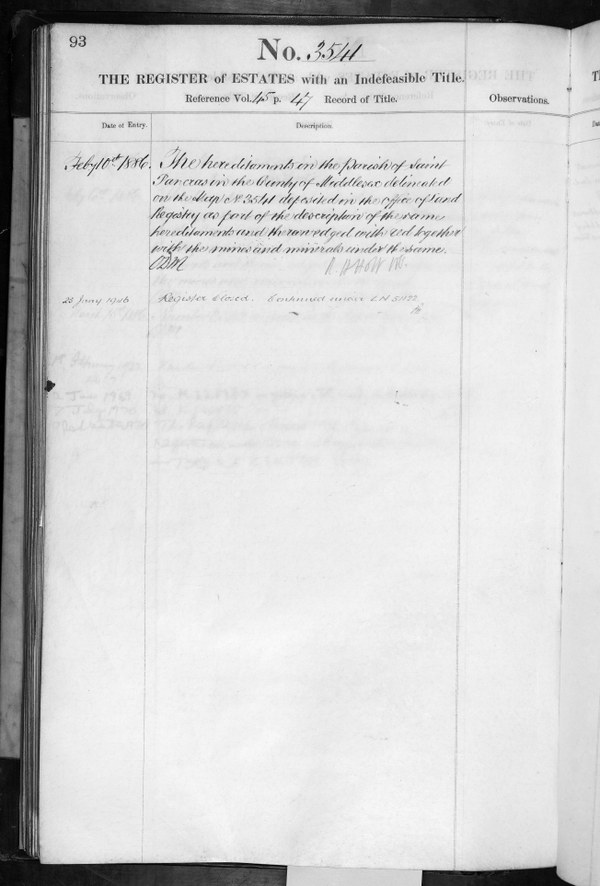 93
No. 3541
THE REGISTER of ESTATES with an Indefeasible Title.
Reference Vol. 15 p. 47 Record of Title.
Observations.
Date of Entry.
Description.
Feby 10th 1886.
The hereditaments in the Parish of Saint
Pancras in the County of Middlesex delineated
on the Map No 3541 deposited in the office of Land
Registry as part of the description of the same
hereditaments and thereon edged with red together
with the mines and minerals under the same.
R. H Holt
Register closed. Continued under